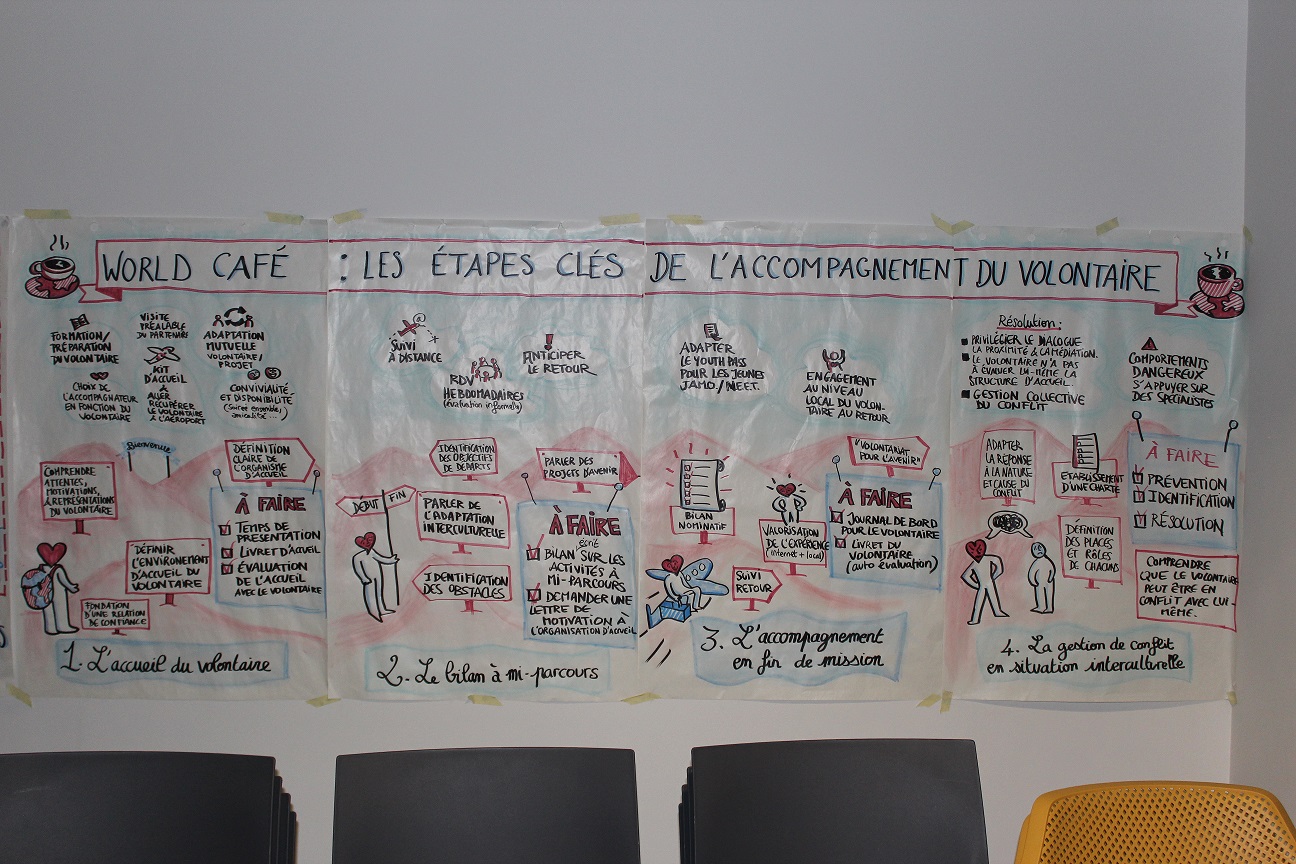 WORLD CAFÉ : LES ÉTAPES CLÉS DE L'ACCOMPAGNEMENT DU VOLONTAIRE
FORMATION/
PRÉPARATION
DU VOLONTAIRE
VISITE
PRÉALABLE
DU PARTENAIRE
ADAPTATION
MUTUELLE
VOLONTAIRE/
PROJET
CHOIX DE
L'ACCOMPAGNATEUR
EN FONCTION DU
VOLONTAIRE
KIT
D'ACCUEIL
&
ALLER
RÉCUPÉRER
LE VOLONTAIRE
À L'AÉROPORT
CONVIVIALITÉ
ET DISPONIBILITÉ
(Soirée ensemble,
amicalité...)
Bienvenue
COMPRENDRE
ATTENTES,
MOTIVATIONS,
& REPRÉSENTATIONS
DU VOLONTAIRE
DÉFINITION
CLAIRE DE
L'ORGANISME
D'ACCUEIL
DÉFINIR
L'ENVIRONEMENT
D'ACCUEIL DU
VOLONTAIRE
FONDATION
D'UNE RELATION
DE CONFIANCE
À FAIRE
TEMPS DE
PRESENTATION
LIVRET D'ACCUEIL
ÉVALUATION
DE L'ACCUEIL
AVEC LE VOLONTAIRE
1. L'accueil du volontaire
SUIVI
À DISTANCE
@
RDV
HEBDOMADAIRES
(évaluation informelle)
ANTICIPER
LE RETOUR
IDENTIFICATION
DES OBJECTIFS
DE DÉPARTS
PARLER DES
PROJETS D'AVENIR
DÉBUT
FIN
PARLER DE
L'ADAPTATION
INTERCULTURELLE
IDENTIFICATION
DES OBSTACLES
À FAIRE
écrit
BILAN SUR LES
ACTIVITÉS À
MI-PARCOURS
DEMANDER UNE
LETTRE DE
MOTIVATION À
L'ORGANISATION D'ACCUEIL
2. Le bilan à mi-parcours
ADAPTER
LE YOUTH PASS
POUR LES JEUNES
JAMO/NEET.
ENGAGEMENT
AU NIVEAU
LOCAL DU VOLON-
TAIRE AU RETOUR
"VOLONTARIAT
POUR L'AVENIR"
BILAN
NOMINATIF
VALORISATION
DE L'EXPÉRIENCE
(internet + local)
SUIVI
RETOUR
À FAIRE
JOURNAL DE BORD
POUR LE VOLONTAIRE
LIVRET DU
VOLONTAIRE
(auto évaluation)
3. L'accompagnement
en fin de mission
Résolution :
PRIVILÉGIER LE DIALOGUE
LA PROXIMITÉ & LA MÉDIATION.
LE VOLONTAIRE N'A PAS
À ÉVALUER LUI-MÊME LA
STRUCTURE D'ACCUEIL.
GESTION COLLECTIVE
DU CONFLIT
COMPORTEMENTS
DANGEREUX
S'APPUYER SUR
DES SPÉCIALISTES
ADAPTER
LA RÉPONSE
À LA NATURE
ET CAUSE DU
CONFLIT
ETABLISSEMENT
D'UNE CHARTE
DÉFINITION
DES PLACES
ET RÔLES
DE CHACUNS
À FAIRE
PRÉVENTION
IDENTIFICATION
RÉSOLUTION
COMPRENDRE
QUE LE VOLONTAIRE
PEUT ÊTRE EN
CONFLIT AVEC LUI-
MÊME.
4. La gestion de conflit
en situation interculturelle